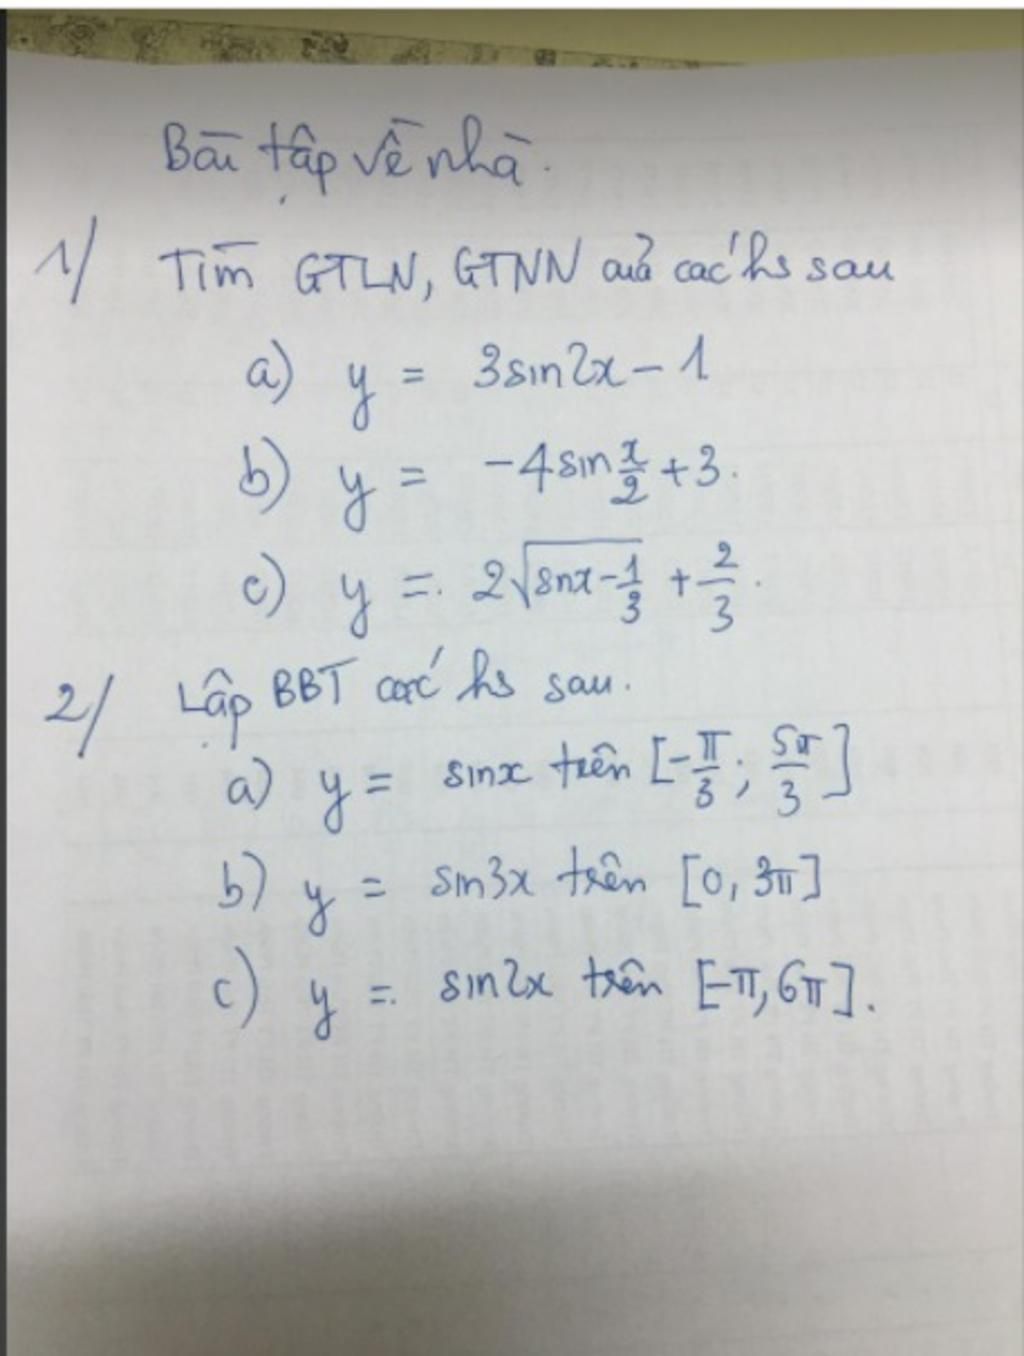 Bài tập về nhà.
1/ Tìm GTLN, GTNN của các hs sau
a) y = 3sin2x - 1
b) y = -4sin x/2 + 3.
c) y = 2√(sinx - 1/3) + 2/3.
2/ Lập BBT các hs sau.
a) y = sinx trên [-π/3; 5π/3]
b) y = sin3x trên [0, 3π]
c) y = sin2x trên [-π, 6π].